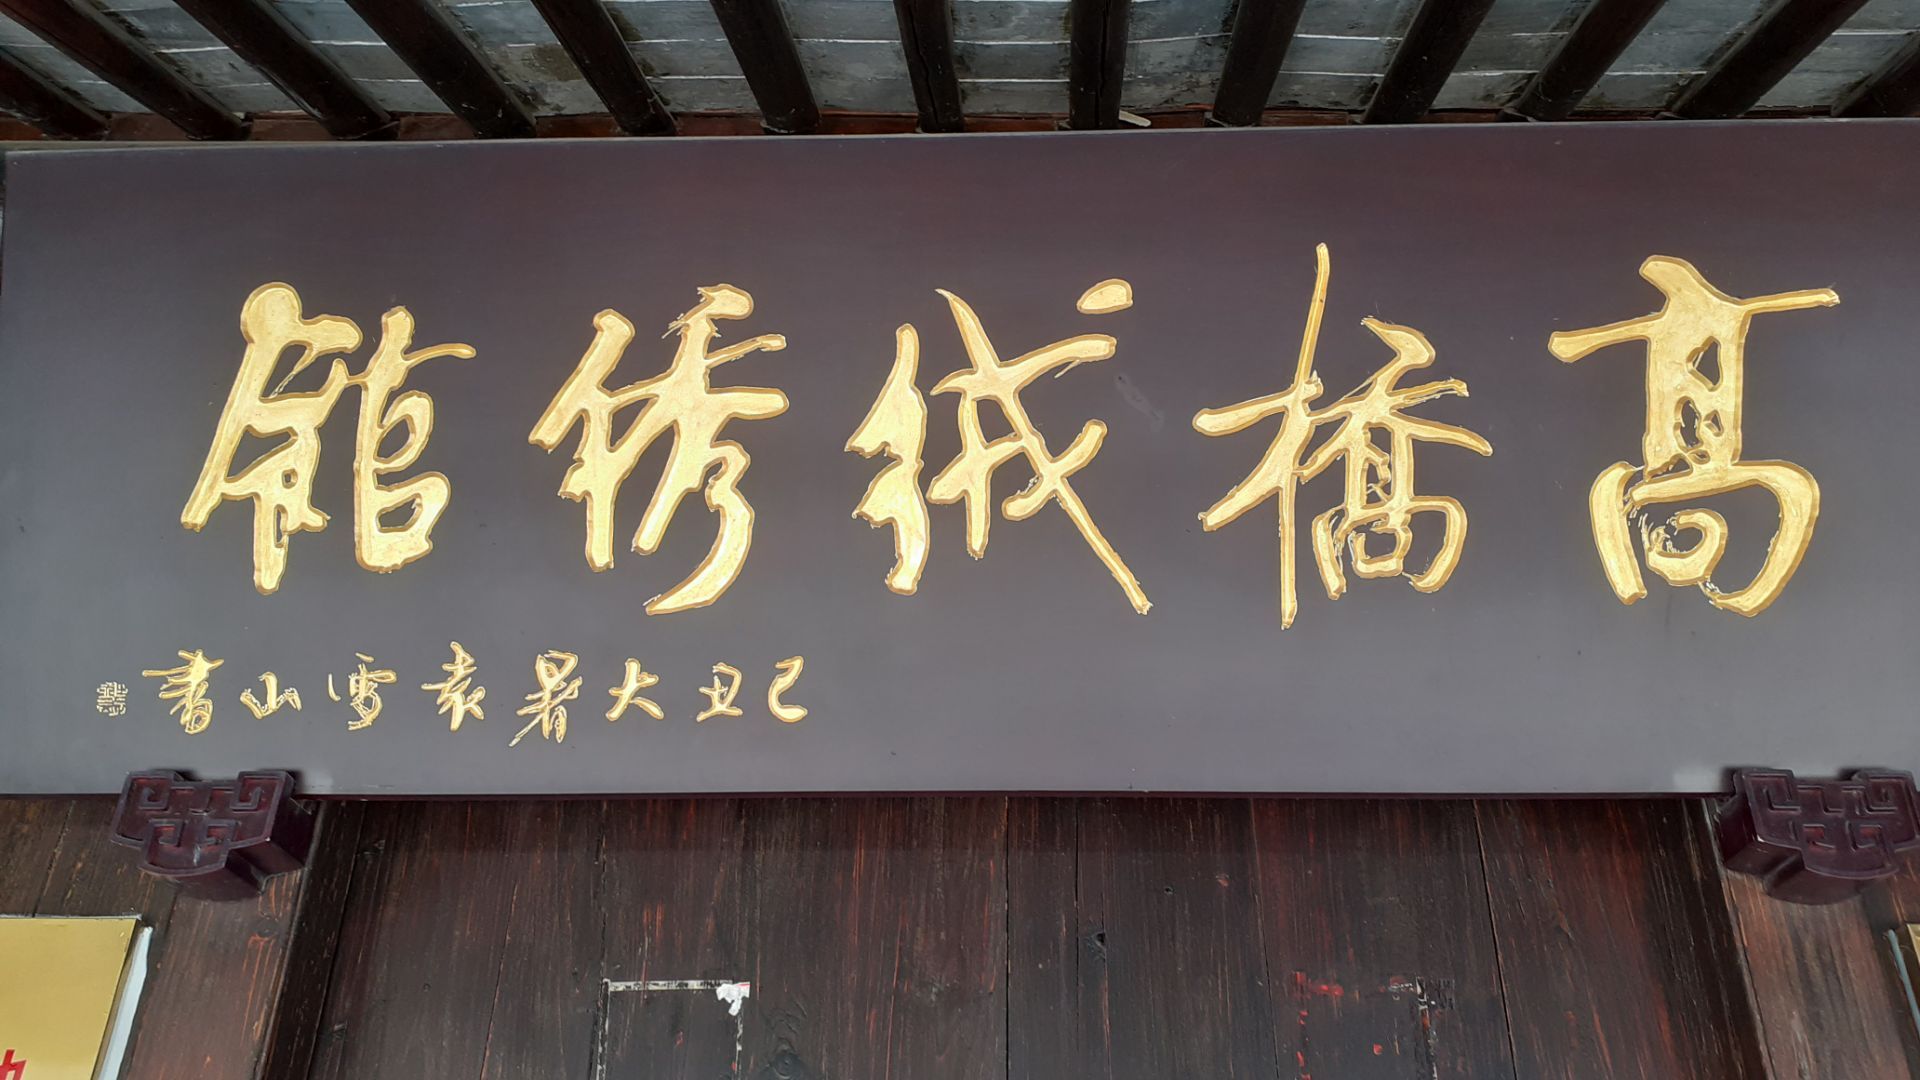 高橋絨绣館
己丑大暑袁雪山書